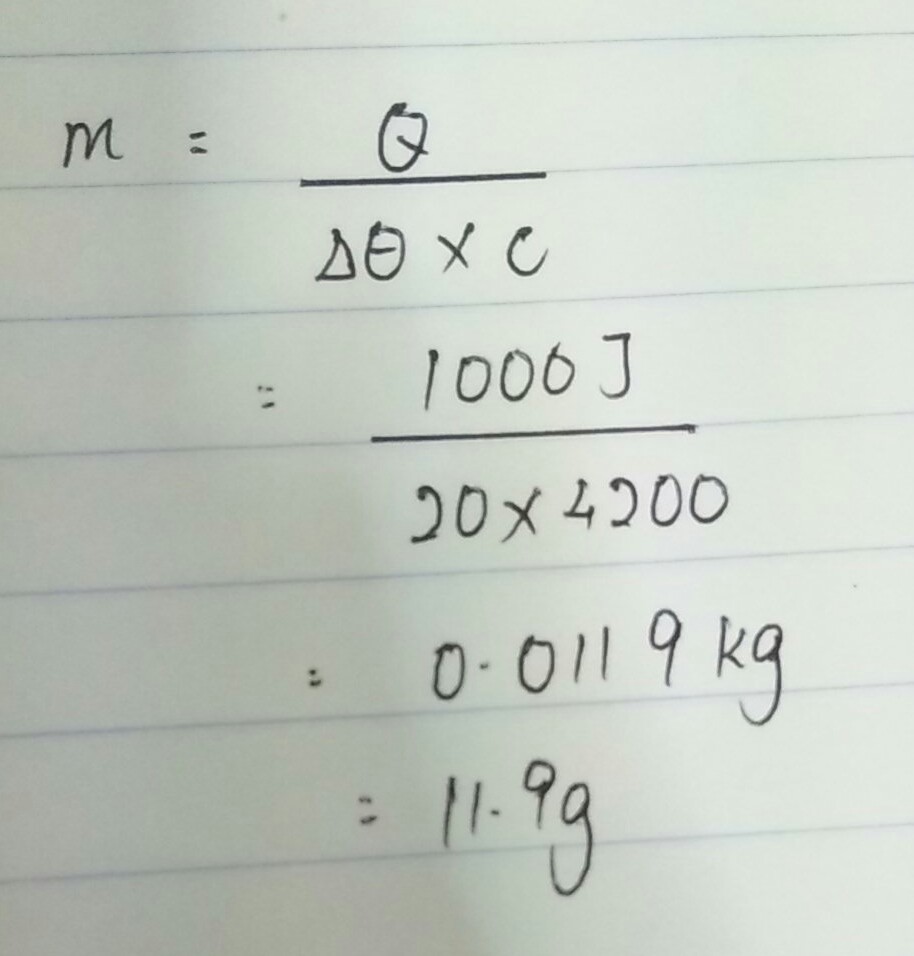 m = Q
Δθ × C
= 1000 J
20 × 4200
= 0.0119 kg
= 11.9g